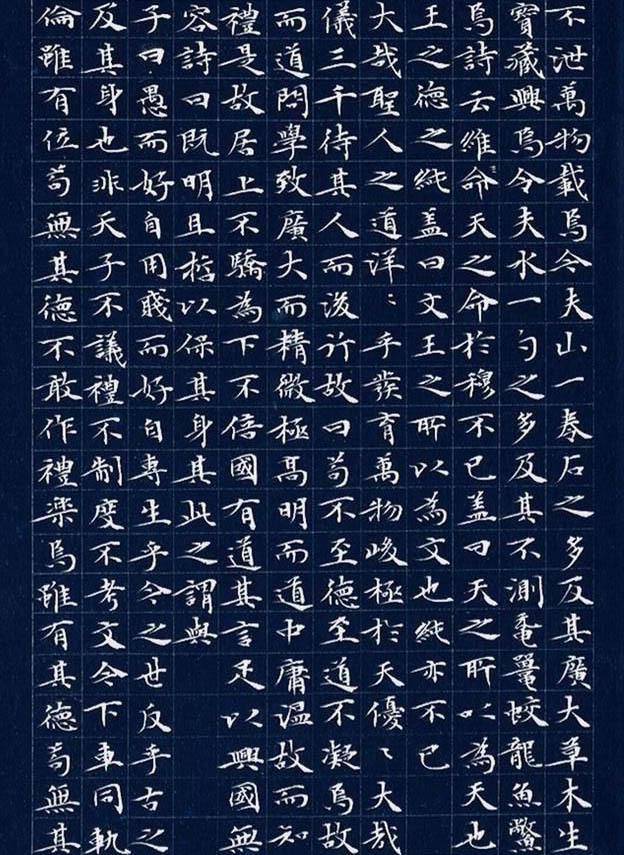 不泄萬物載焉今夫山一卷石之多及其廣大草木生
寶藏興焉今夫水一勺之多及其不測黿鼉蛟龍魚鱉
焉詩云維命天之命於穆不已盖曰天之所以為天也
王之德之純盖曰文王之所以為文也純亦不已
大哉聖人之道洋〻乎發育萬物峻極於天優〻大哉
儀三千待其人而後行故曰苟不至德至道不凝焉故
而道問學致廣大而精微極高明而道中庸温故而知
禮是故居上不驕為下不倍國有道其言足以興國無
容詩曰既明且哲以保其身其此之謂與
子曰愚而好自用賤而好自專生乎今之世反乎古之
及其身也非天子不議禮不制度不考文今下車同軌
倫雖有位苟無其德不敢作禮樂焉雖有其德苟無其